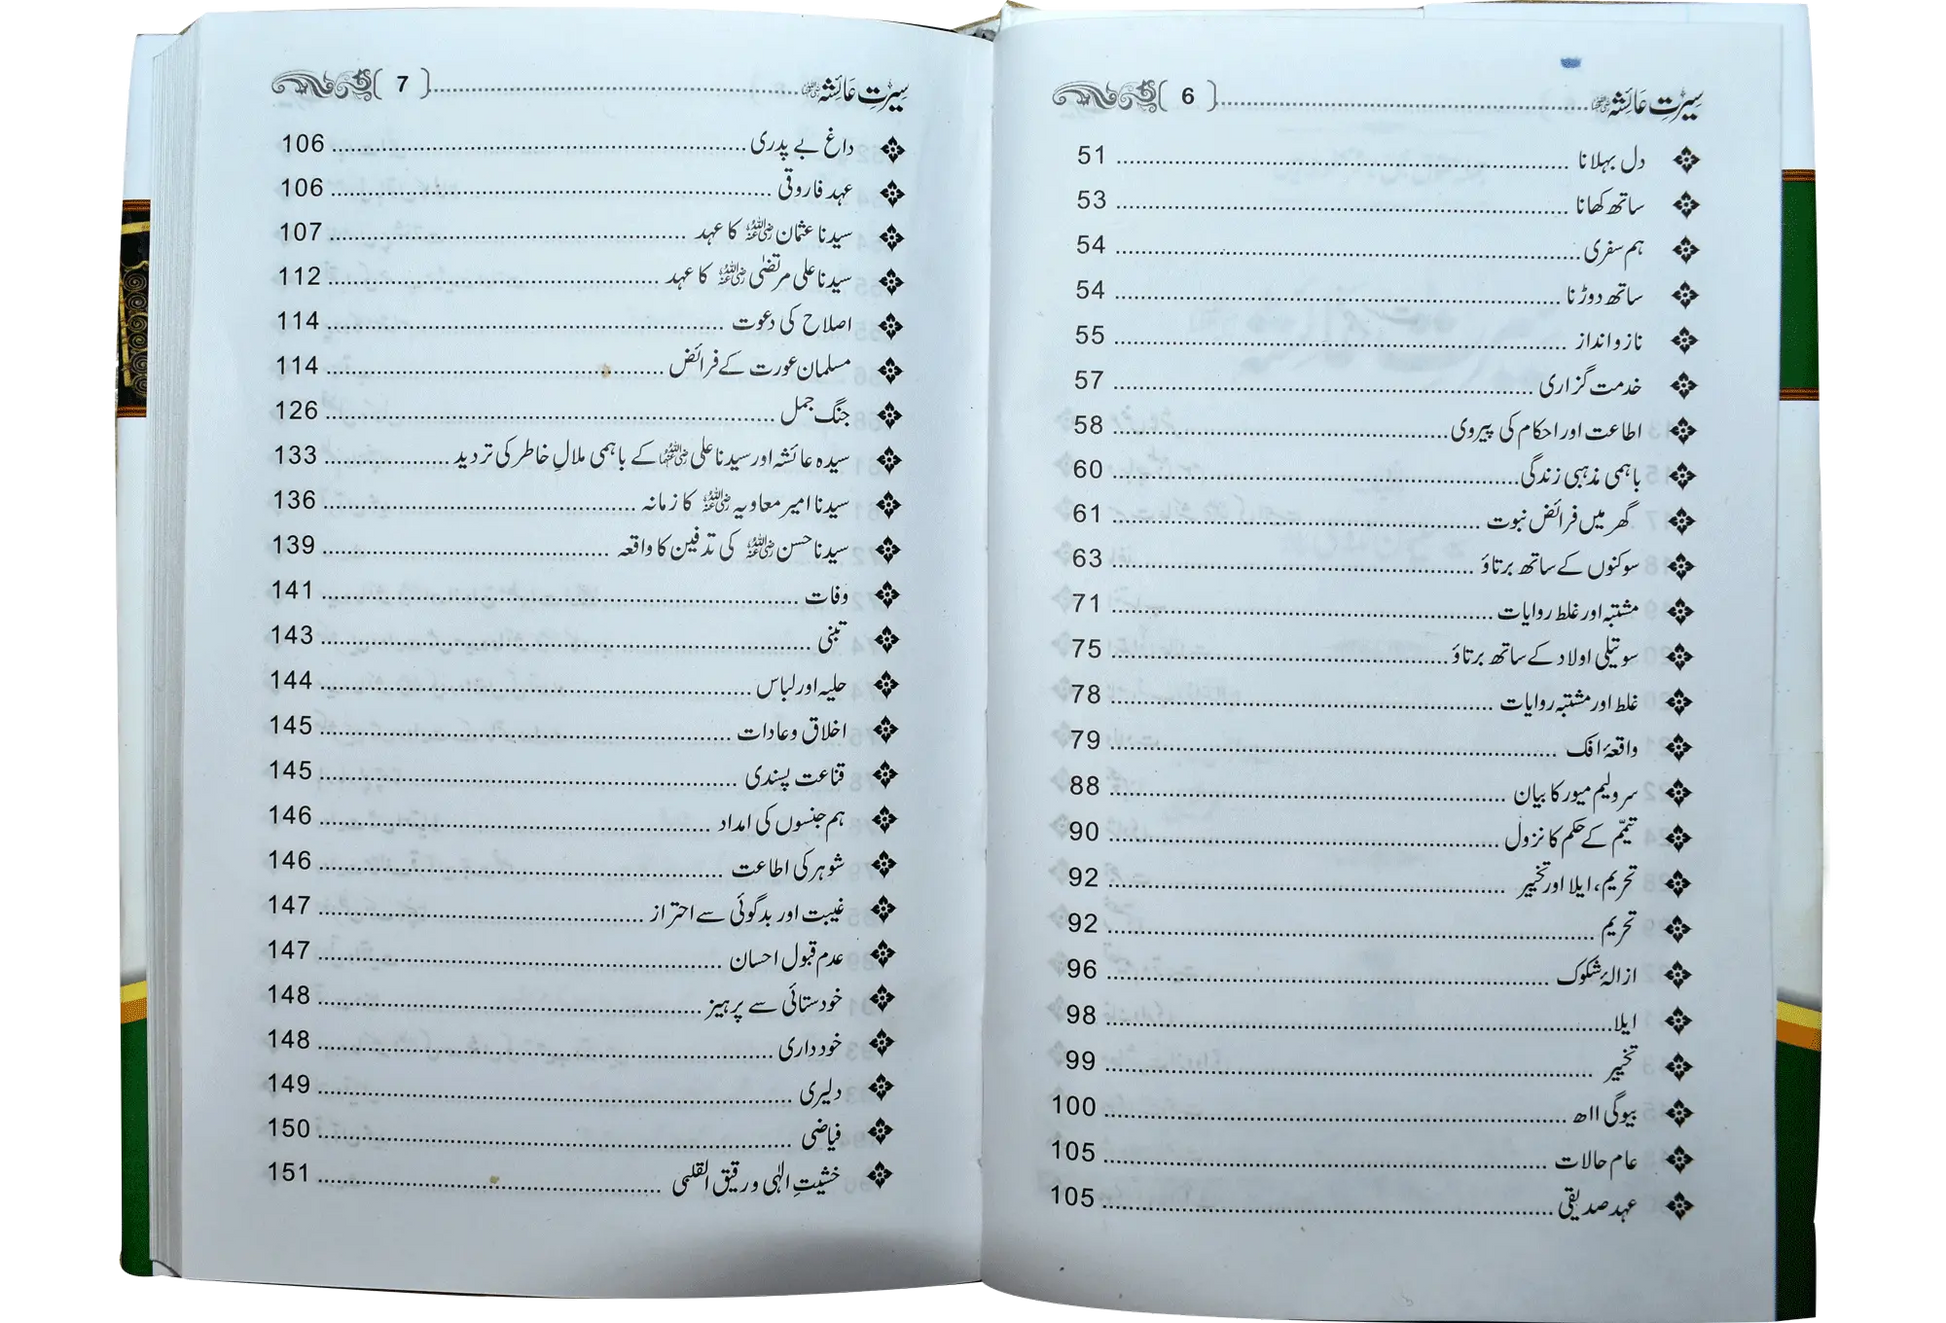 سیرتِ عائشہ رضی اللہ عنہا ........ 6
دل بہلانا ........ 51
ساتھ کھانا ........ 53
ہم سفری ........ 54
ساتھ دوڑنا ........ 54
ناز و انداز ........ 55
خدمت گزاری ........ 57
اطاعت اور احکام کی پیروی ........ 58
باہمی مذہبی زندگی ........ 60
گھر میں فرائض نبوت ........ 61
سوکنوں کے ساتھ برتاؤ ........ 63
مشتبہ اور غلط روایات ........ 71
سوتیلی اولاد کے ساتھ برتاؤ ........ 75
غلط اور مشتبہ روایات ........ 78
واقعۂ افک ........ 79
سر ولیم میور کا بیان ........ 88
تیمّم کے حکم کا نزول ........ 90
تحریم، ایلا اور تخییر ........ 92
تحریم ........ 92
ازالۂ شکوک ........ 96
ایلا ........ 98
تخییر ........ 99
بیوگی ااھ ........ 100
عام حالات ........ 105
عہد صدیقی ........ 105
سیرتِ عائشہ رضی اللہ عنہا ........ 7
داغ بے پدری ........ 106
عہد فاروقی ........ 106
سیدنا عثمان رضی اللہ عنہ کا عہد ........ 107
سیدنا علی مرتضیٰ رضی اللہ عنہ کا عہد ........ 112
اصلاح کی دعوت ........ 114
مسلمان عورت کے فرائض ........ 114
جنگ جمل ........ 126
سیدہ عائشہ اور سیدنا علی رضی اللہ عنہما کے باہمی ملالِ خاطر کی تردید ........ 133
سیدنا امیر معاویہ رضی اللہ عنہ کا زمانہ ........ 136
سیدنا حسن رضی اللہ عنہ کی تدفین کا واقعہ ........ 139
وفات ........ 141
تبنی ........ 143
حلیہ اور لباس ........ 144
اخلاق و عادات ........ 145
قناعت پسندی ........ 145
ہم جنسوں کی امداد ........ 146
شوہر کی اطاعت ........ 146
غیبت اور بدگوئی سے احتراز ........ 147
عدم قبول احسان ........ 147
خودستائی سے پرہیز ........ 148
خودداری ........ 148
دلیری ........ 149
فیاضی ........ 150
خشیتِ الٰہی و رقیق القلبی ........ 151